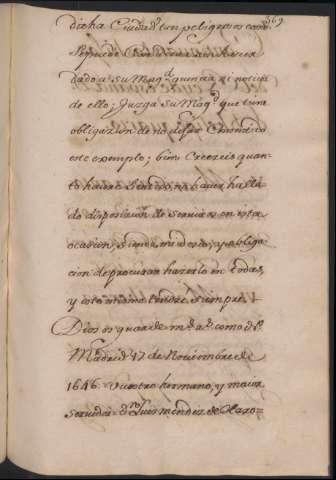 369
dicha Ciudad tan peligrosos como
se puede
dado a su Magd. quincia ni noticia
de ello; Juzga su Magd. que tiene
obligazion de no dejar
este exemplo; bien Creereis quan-
to havre sentido no haver halla-
do disposicion de serviros en esta
ocacion, siendo mi deseo, y obliga-
cion de procurar hazerlo en todas,
y esto mismo tendre siempre.
Dios os guarde ms. as. como dso.
Madrid 17 de Noviembre de
1646. Vuestro hermano, y maior
servidor Dn. Luis Mendez de Haro-